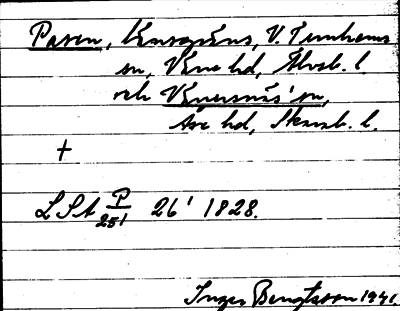 Paren, Korsgräns, V. Tunhems
sn, Väne hd, Älvsb. l.
och Vänersnäs' sn,
Åse hd, Skarab. l.
+
LSA P/251 26' 1828.
Inger Bengtsson 1941